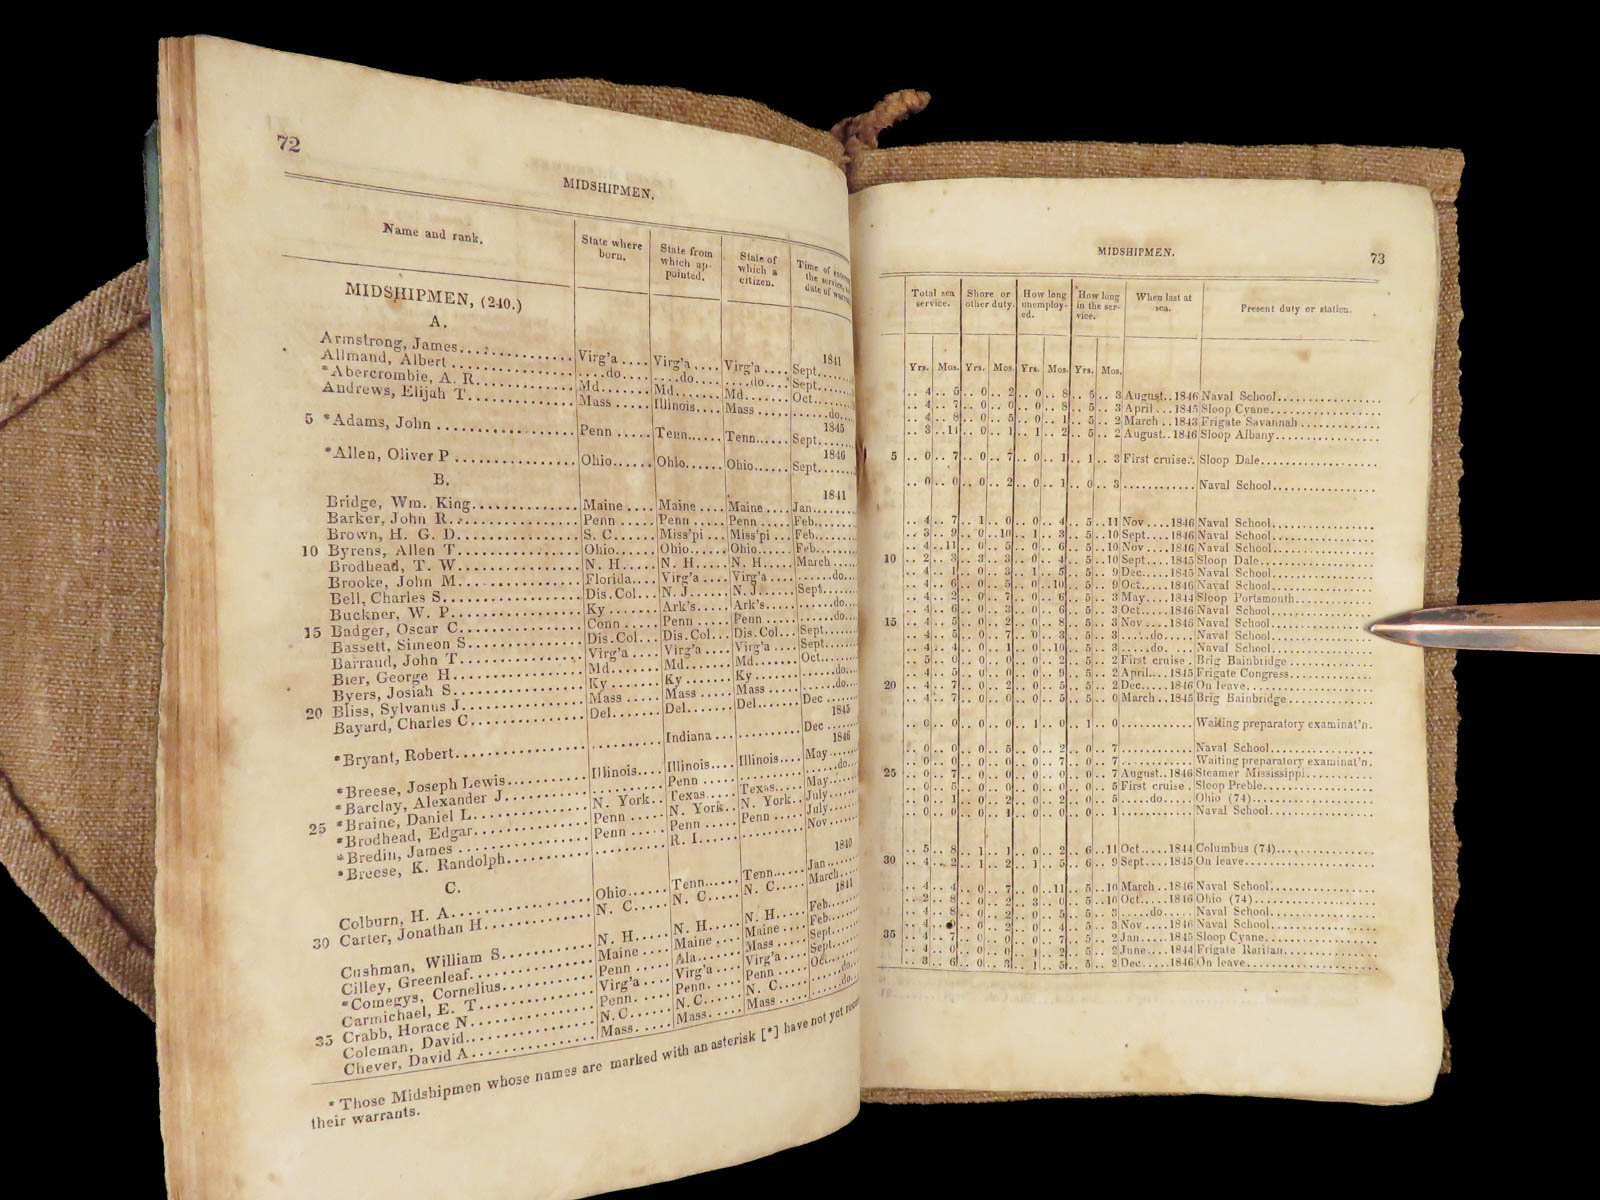 72
MIDSHIPMEN.
Name and rank. State where born. State from which appointed. State of which a citizen. Time of the service, date of
MIDSHIPMEN, (240.)
A. 1841
Armstrong, James Virg'a Virg'a Virg'a Sept.
Allmand, Albert do. do. do. Sept.
*Abercrombie, A. R. Md. Md. Md. Oct.
Andrews, Elijah T. Mass Illinois Mass do.
1845
5 *Adams, John Penn Tenn. Tenn. Sept.
1846
*Allen, Oliver P Ohio Ohio Ohio Sept.
B. 1841
Bridge, Wm. King Maine Maine Maine Jan.
Barker, John R. Penn Penn Penn Feb.
Brown, H. G. D. S. C. Miss'pi Miss'pi Feb.
10 Byrens, Allen T. Ohio Ohio Ohio Feb.
Brodhead, T. W. N. H. N. H. N. H. March
Brooke, John M. Florida Virg'a Virg'a do.
Bell, Charles S. Dis.Col N. J. N. J. Sept.
Buckner, W. P. Ky Ark's Ark's do.
15 Badger, Oscar C. Conn Penn Penn do.
Bassett, Simeon S. Dis.Col Dis.Col Dis.Col Sept.
Barraud, John T. Virg'a Virg'a Virg'a Sept.
Bier, George H. Md Md Md Oct.
Byers, Josiah S. Ky Ky Ky do.
20 Bliss, Sylvanus J. Mass Mass Mass do.
Bayard, Charles C. Del. Del. Del. Dec
1845
*Bryant, Robert Indiana Dec
1846
*Breese, Joseph Lewis Illinois Illinois Illinois May
*Barclay, Alexander J. Penn do.
25 *Braine, Daniel L. N. York Texas Texas May
*Brodhead, Edgar Penn N. York N. York July
*Bredin, James Penn Penn Penn July
*Breese, K. Randolph R. I. Nov
C. 1840
Colburn, H. A. Ohio Tenn. Tenn. Jan.
30 Carter, Jonathan H. N. C. N. C. N. C. March
1841
Cushman, William S. N. H. N. H. N. H. Feb.
Cilley, Greenleaf Maine Maine Maine Feb.
*Comegys, Cornelius Penn Ala Mass Sept.
Carmichael, E. T. Virg'a Virg'a Virg'a Sept.
35 Crabb, Horace N. Penn. Penn. Penn Oct.
Coleman, David N.C. N.C. N. C. do.
Chever, David A. Mass. Mass. Mass do.
* Those Midshipmen whose names are marked with an asterisk [*] have not yet
their warrants.
MIDSHIPMEN. 73
Total sea service. Shore or other duty. How long unemployed. How long in the service. When last at sea. Present duty or station.
Yrs. Mos. Yrs. Mos. Yrs. Mos. Yrs. Mos.
4 5 0 2 0 8 5 3 August 1846 Naval School
4 7 0 0 0 8 5 3 April 1845 Sloop Cyane
4 8 0 5 0 1 5 2 March 1843 Frigate Savannah
3 11 0 1 1 2 5 2 August 1846 Sloop Albany
5 0 7 0 7 0 1 1 3 First cruise Sloop Dale
0 0 0 2 0 1 0 3 Naval School
4 7 1 0 0 4 5 11 Nov 1846 Naval School
3 9 0 10 1 3 5 10 Sept 1846 Naval School
4 11 0 5 0 6 5 10 Nov 1846 Naval School
10 2 3 3 3 0 4 5 10 Sept 1845 Sloop Dale
4 1 0 3 1 5 5 9 Dec 1845 Naval School
4 6 0 5 0 10 5 9 Oct 1846 Naval School
4 2 0 7 0 6 5 3 May 1844 Sloop Portsmouth
4 6 0 3 0 6 5 3 Oct 1846 Naval School
15 4 5 0 2 0 8 5 3 Nov 1846 Naval School
4 5 0 7 0 3 5 3 do. Naval School
4 4 0 1 0 10 5 3 do. Naval School
5 0 0 0 0 2 5 2 First cruise Brig Bainbridge
4 5 0 0 0 9 5 2 April 1845 Frigate Congress
20 4 7 0 2 0 5 5 2 Dec 1846 On leave
4 7 0 0 0 5 5 0 March 1845 Brig Bainbridge
0 0 0 0 1 0 1 0 Waiting preparatory examinat'n.
0 0 0 5 0 2 0 7 Naval School
0 0 0 0 0 7 0 7 Waiting preparatory examinat'n.
25 0 7 0 0 0 0 0 7 August 1846 Steamer Mississippi
0 5 0 0 0 0 0 5 First cruise Sloop Preble
0 1 0 2 0 2 0 5 do. Ohio (74)
0 0 0 1 0 0 0 1 Naval School
5 8 1 1 0 2 6 11 Oct 1844 Columbus (74)
30 4 2 1 2 1 5 6 9 Sept 1845 On leave
4 4 0 7 0 11 5 10 March 1846 Naval School
2 8 0 2 3 0 5 10 Oct 1846 Ohio (74)
4 8 0 2 0 5 5 3 do. Naval School
4 0 2 0 4 5 3 Nov 1846 Naval School
35 4 7 0 0 0 7 5 2 Jan 1845 Sloop Cyane
4 0 0 0 1 2 5 2 June 1844 Frigate Raritan
3 6 0 3 1 5 5 2 Dec 1846 On leave